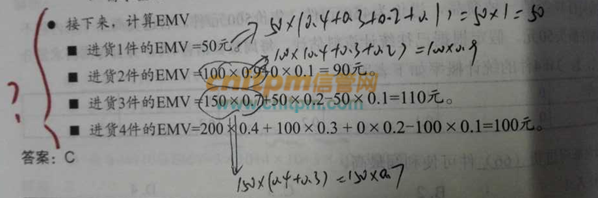 接下来，计算EMV
50×(0.4+0.3+0.2+0.1)=50×1=50
进货1件的EMV=50元。
100×(0.4+0.3+0.2)=100×0.9
进货2件的EMV=100×0.9+0×0.1=90元。
cnitpm信管网
进货3件的EMV=150×0.7+50×0.2-50×0.1=110元。
www.cnitpm.com
进货4件的EMV=200×0.4+100×0.3+0×0.2-100×0.1=100元。
?
答案：C
150×(0.4+0.3)=150×0.7